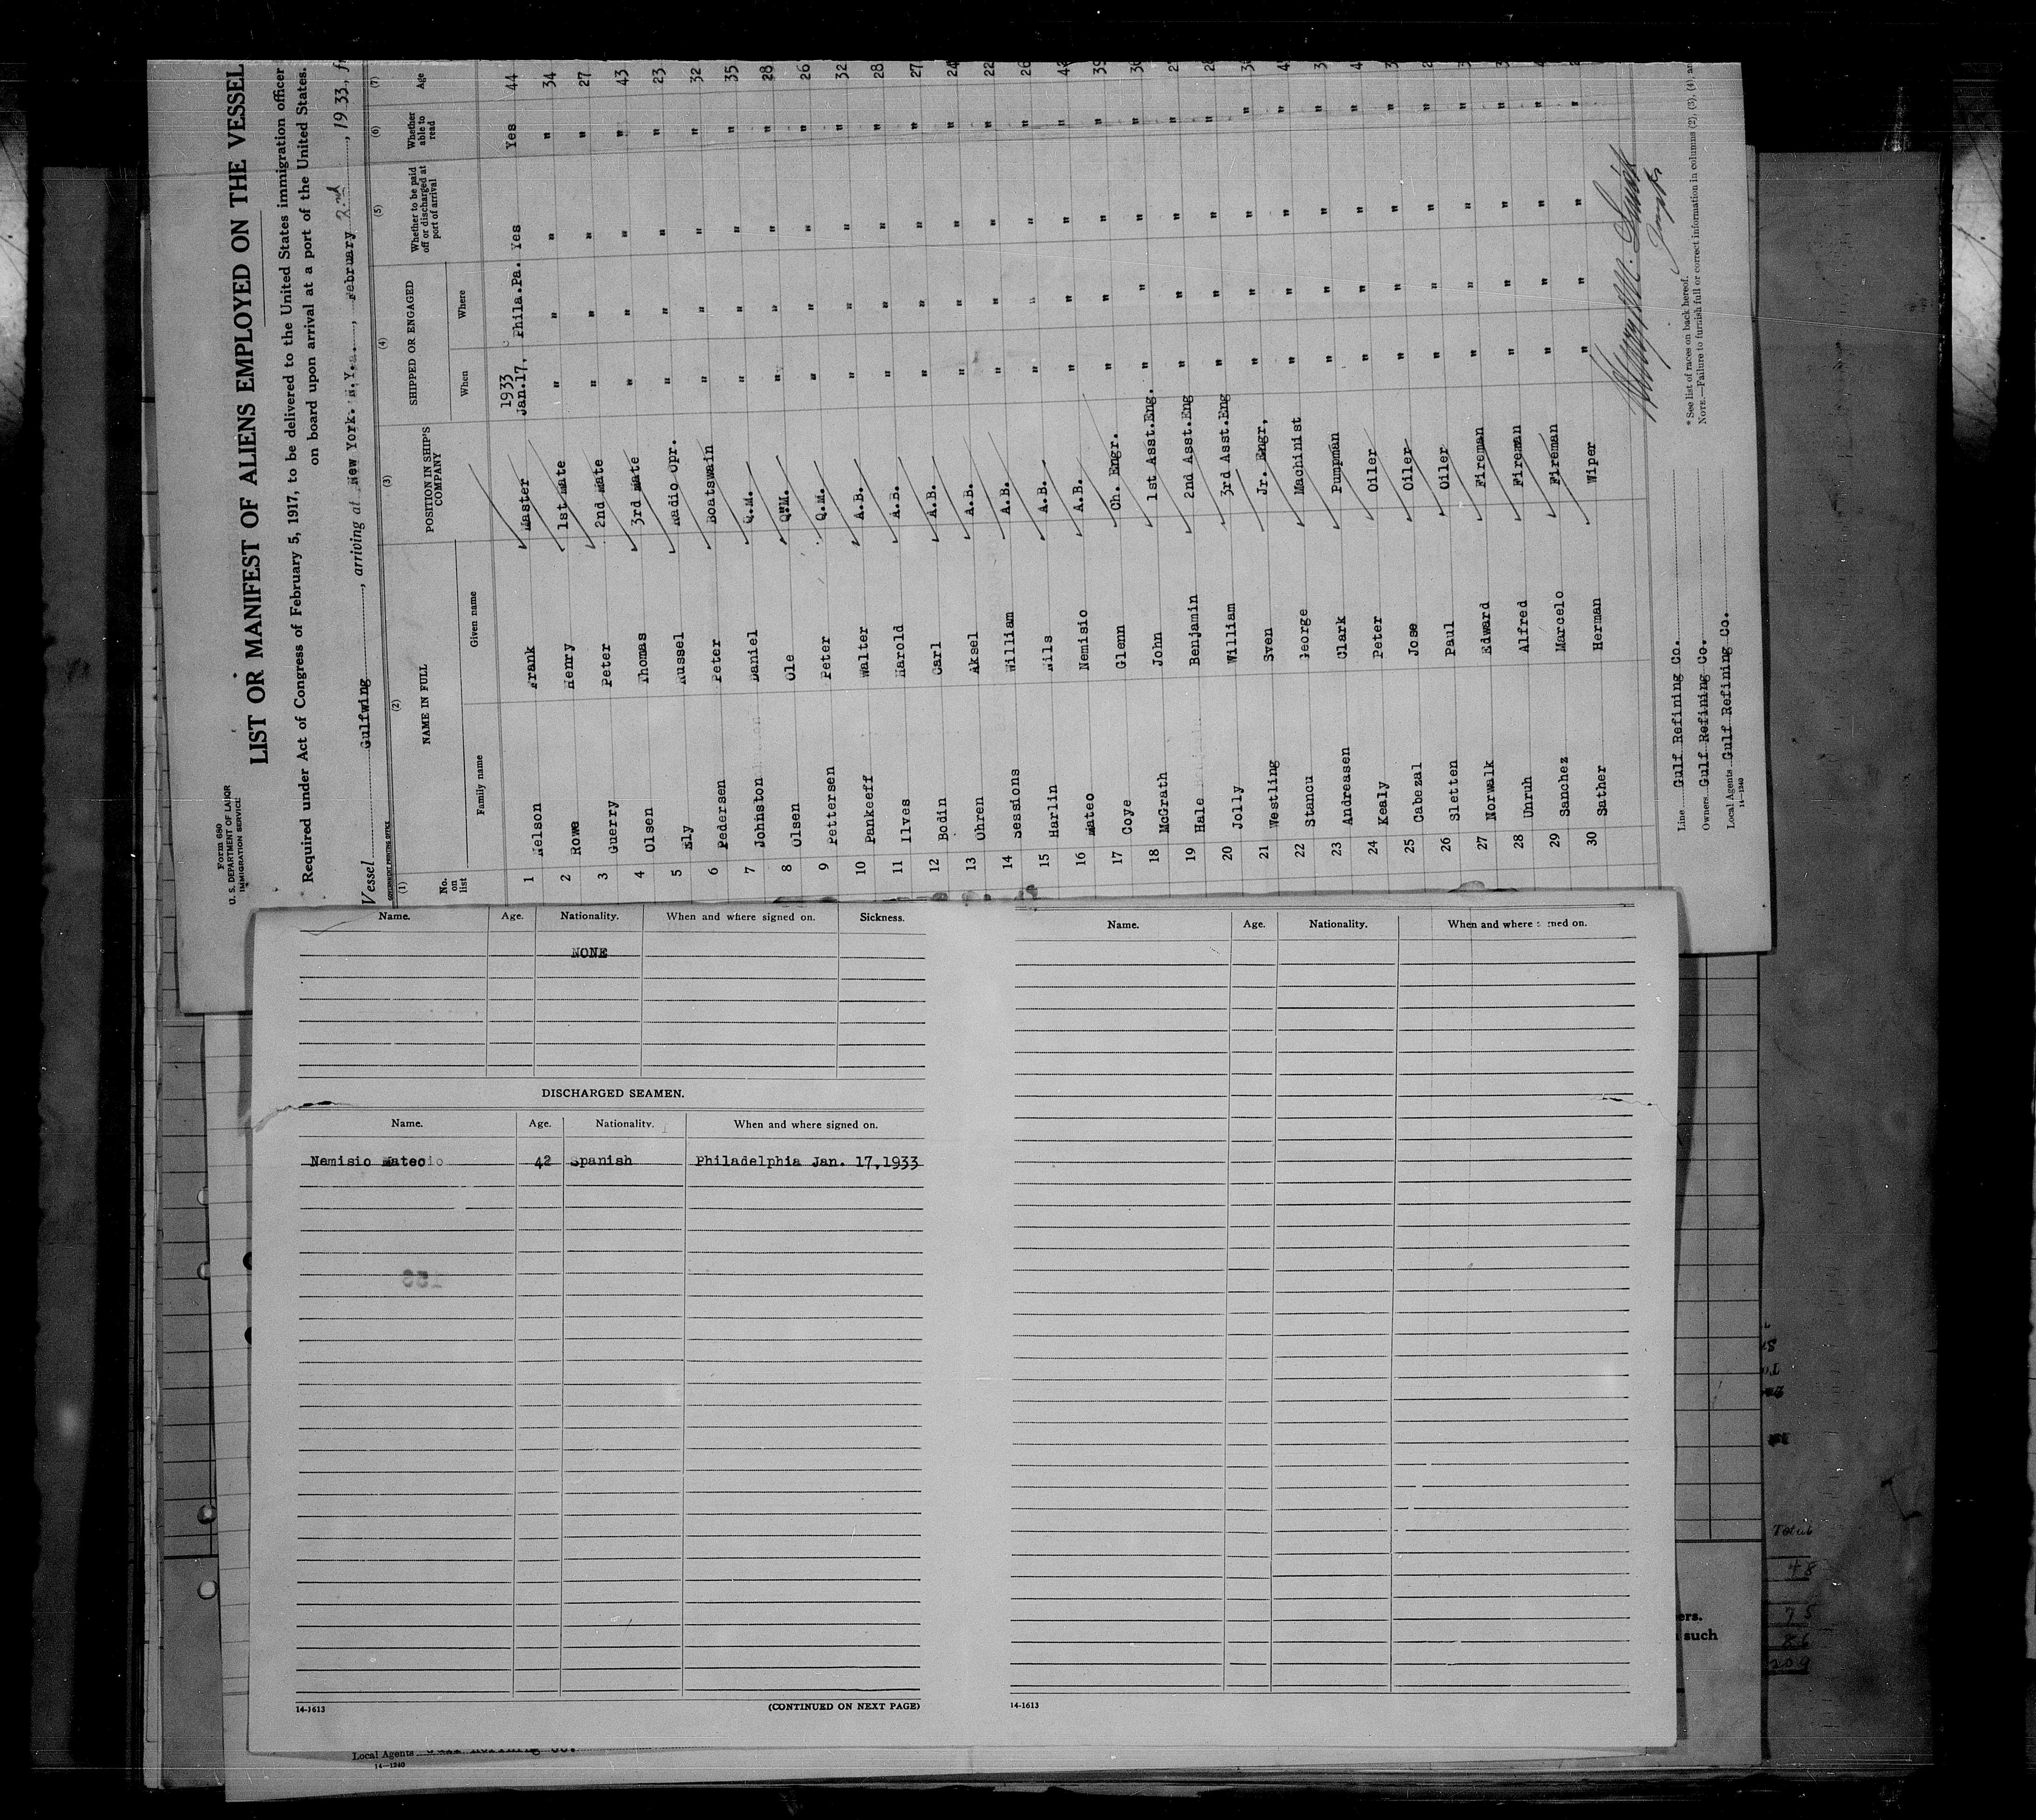 Form 680
U. S. DEPARTMENT OF LABOR
IMMIGRATION SERVICE
LIST OR MANIFEST OF ALIENS EMPLOYED ON THE VESSEL
Required under Act of Congress of February 5, 1917, to be delivered to the United States immigration officer
on board upon arrival at a port of the United States.
Vessel Gulfwing, arriving at New York. N.Y., February 2nd, 1933, fr
GOVERNMENT PRINTING OFFICE
(1) (2) (3) (4) (5) (6) (7)
No. on list NAME IN FULL POSITION IN SHIP'S COMPANY SHIPPED OR ENGAGED Whether to be paid off or discharged at port of arrival Whether able to read Age
Family name Given name When Where
1 Nelson Frank Master 1933 Jan.17, Phila.Pa. Yes Yes 44
2 Rowe Henry 1st Mate " " " " 34
3 Guerry Peter 2nd Mate " " " " 27
4 Olsen Thomas 3rd Mate " " " " 43
5 Ely Russel Radio Opr. " " " " 23
6 Pedersen Peter Boatswain " " " " 32
7 Johnston Daniel Q.M. " " " " 35
8 Olsen Ole Q.M. " " " " 28
9 Pettersen Peter Q.M. " " " " 26
10 Pankeeff Walter A.B. " " " " 32
11 Ilves Harold A.B. " " " " 28
12 Bodin Carl A.B. " " " " 27
13 Ohren Aksel A.B. " " " " 24
14 Sessions William A.B. " " " " 22
15 Harlin Nils A.B. " " " " 26
16 Mateo Nemisio A.B. " " " " 42
17 Coye Glenn Ch. Engr. " " " " 39
18 McGrath John 1st Asst.Eng. " " " "
19 Hale Benjamin 2nd Asst.Eng " " " "
20 Jolly William 3rd Asst.Eng " " " "
21 Westling Sven Jr. Engr, " " " "
22 Stancu George Machinist " " " "
23 Andreasen Clark Pumpman " " " "
24 Kealy Peter Oiler " " " "
25 Cabezal Jose Oiler " " " "
26 Sletten Paul Oiler " " " "
27 Norwalk Edward Fireman " " " "
28 Unruh Alfred Fireman " " " "
29 Sanchez Marcelo Fireman " " " "
30 Sather Herman Wiper " " " "
Line Gulf Refining Co.
Owners Gulf Refining Co.
Local Agents Gulf Refining Co.
14-1240
* See list of races on back hereof.
NOTE.—Failure to furnish full or correct information in columns (2), (3), (4), an
Name. Age. Nationality. When and where signed on. Sickness.
NONE
DISCHARGED SEAMEN.
Name. Age. Nationality. When and where signed on.
Nemisio Mateo 42 Spanish Philadelphia Jan. 17,1933
14-1613
(CONTINUED ON NEXT PAGE)
Name. Age. Nationality. When and where signed on.
14-1613
Local Agents
14-1240
ers.
such
Total
48
75
86
209